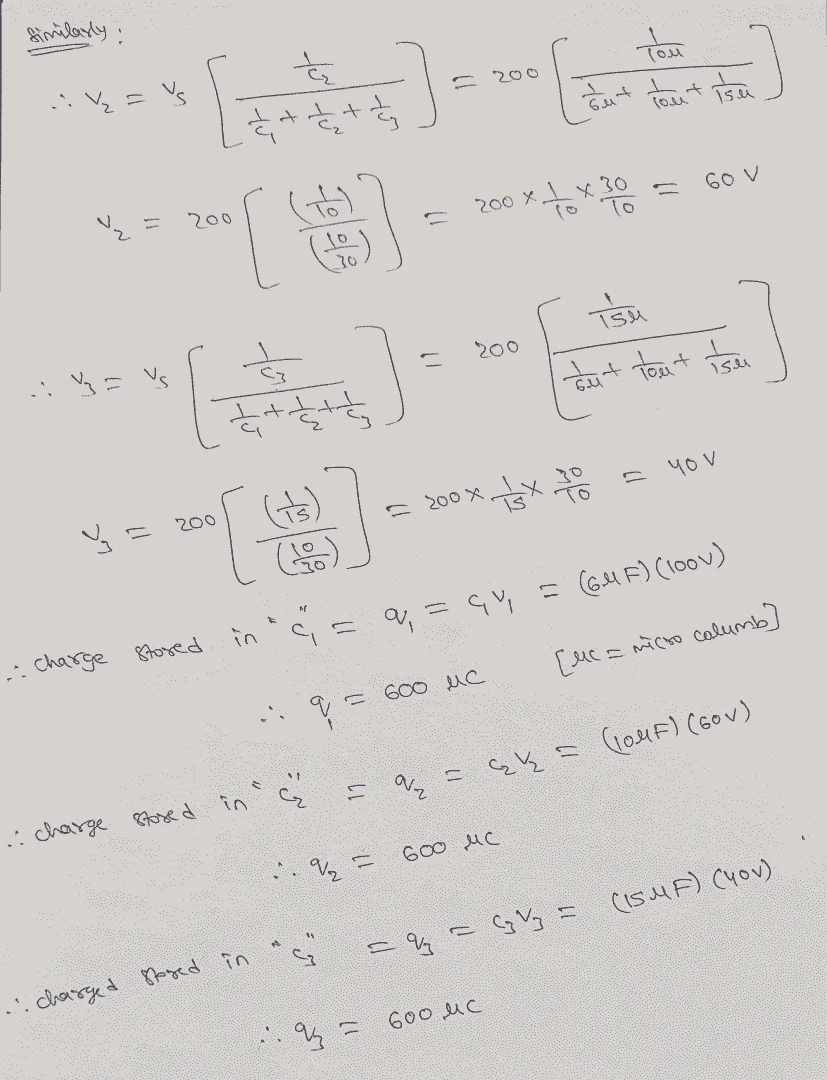 Similarly :
∴ V₂ = Vs [ (1/C₂) / (1/C₁ + 1/C₂ + 1/C₃) ] = 200 [ (1/10μ) / (1/6μ + 1/10μ + 1/15μ) ]
V₂ = 200 [ (1/10) / (10/30) ] = 200 × 1/10 × 30/10 = 60 V
∴ V₃ = Vs [ (1/C₃) / (1/C₁ + 1/C₂ + 1/C₃) ] = 200 [ (1/15μ) / (1/6μ + 1/10μ + 1/15μ) ]
V₃ = 200 [ (1/15) / (10/30) ] = 200 × 1/15 × 30/10 = 40 V
∴ charge stored in "C₁" = q₁ = C₁V₁ = (6μF) (100V)
∴ q₁ = 600 μC [μC = micro calumb]
∴ charge stored in "C₂" = q₂ = C₂V₂ = (10μF) (60V)
∴ q₂ = 600 μC
∴ charged stored in "C₃" = q₃ = C₃V₃ = (15μF) (40V)
∴ q₃ = 600 μC